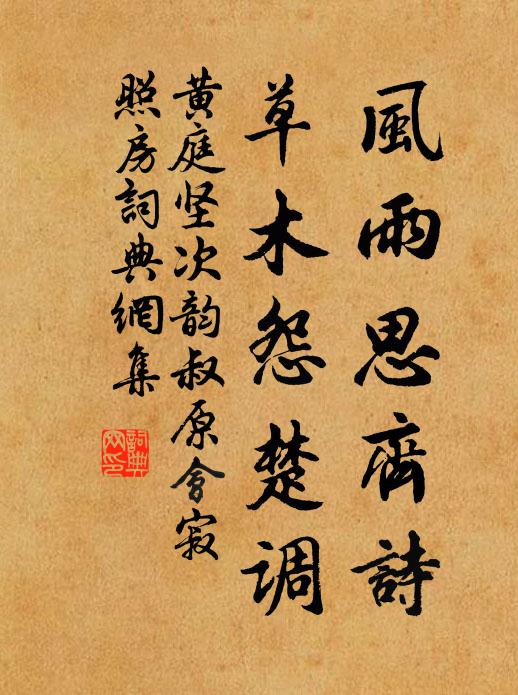 風雨思齊詩
草木怨楚调
黄庭坚次韵叔原會寂
照房詞典網集
詞典網印